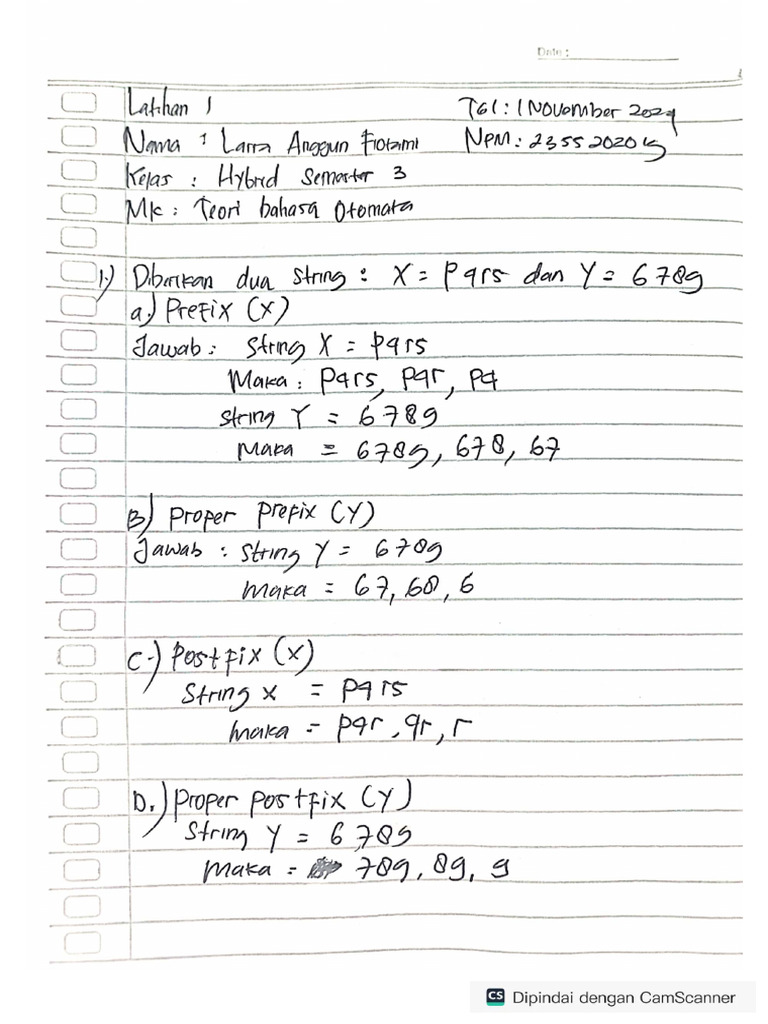 Date :
Latihan 1 Tgl : 1 November 2024
Nama : Larra Anggun Fiotami NPM : 2355202015
Kelas : Hybrid Semester 3
Mk : Teori bahasa Otomata
1.) Diberikan dua string : X = pqrs dan Y = 6789
a.) Prefix (X)
Jawab : String X = pqrs
Maka : pqrs, pqr, pq
string Y = 6789
Maka = 6789, 678, 67
B) Proper prefix (Y)
Jawab : string Y = 6789
maka = 67, 68, 6
C.) Postfix (X)
String x = pqrs
maka = pqr, qr, r
D.) Proper postfix (Y)
String Y = 6789
Maka = 789, 89, 9
CS Dipindai dengan CamScanner